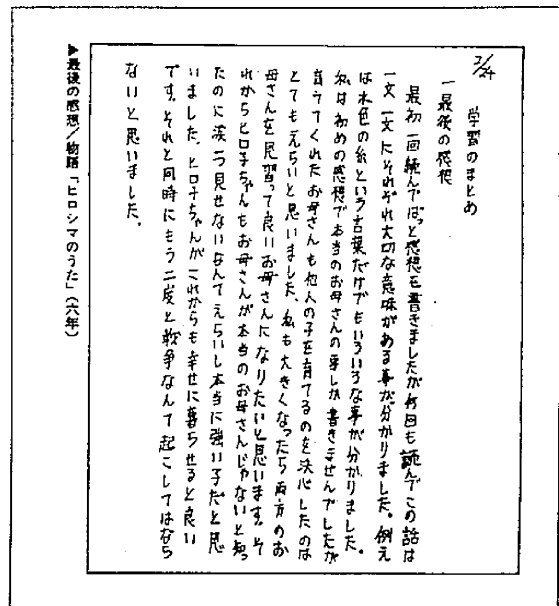 2/24
学習のまとめ
一 最後の感想
最初一回読んでぱっと感想を書きましたが何回も読んでこの話は
一文一文にそれぞれ大切な意味がある事が分かりました。例え
ば水色の糸という言葉だけでもいろいろな事が分かりました。
私は初めの感想で本当のお母さんの事しか書きませんでしたが
育ててくれたお母さんも他人の子を育てるのを決心したのは
とてもえらいと思いました。私も大きくなったら両方のお
母さんを見習って良いお母さんになりたいと思います。そ
れからヒロ子ちゃんもお母さんが本当のお母さんじゃないと知っ
たのに涙一つ見せないなんてえらいし本当に強い子だと思
いました。ヒロ子ちゃんがこれからも幸せに暮らせると良い
です。それと同時にもう二度と戦争なんて起こしてはなら
ないと思いました。
▶最後の感想／物語「ヒロシマのうた」(六年)